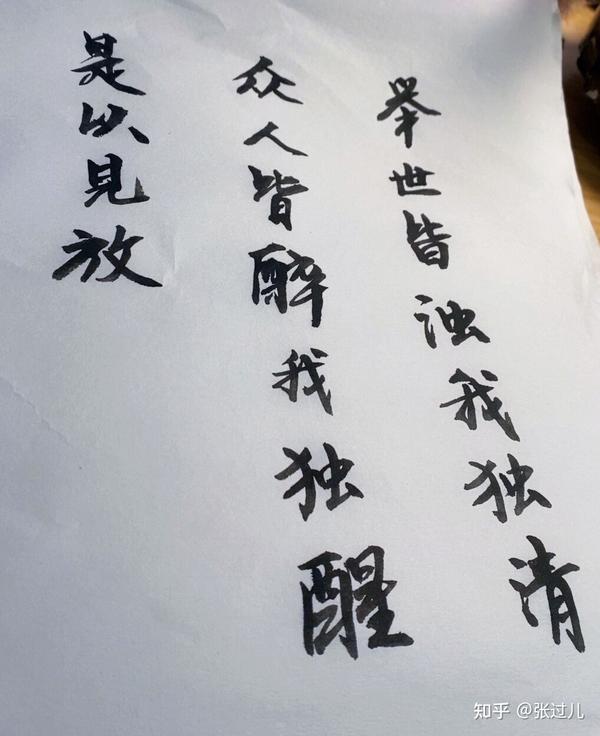 举世皆浊我独清
众人皆醉我独醒
是以見放
知乎 @张过儿